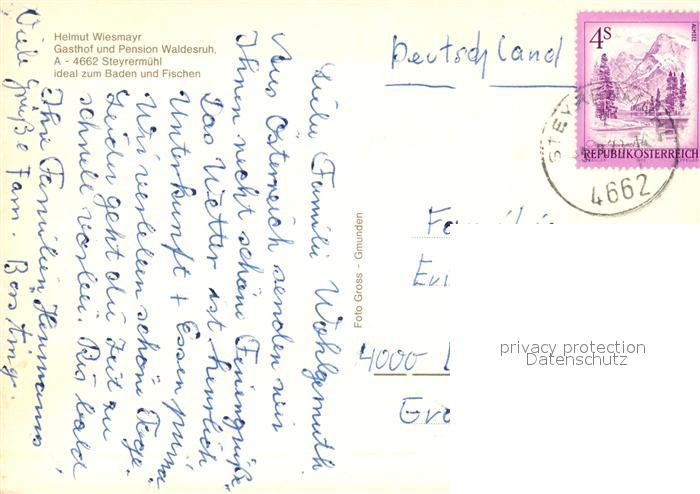 Helmut Wiesmayr
Gasthof und Pension Waldesruh,
A - 4662 Steyrermühl
ideal zum Baden und Fischen
Liebe Familie Wohlgemuth
Aus Österreich senden wir
Ihnen recht schöne Feriengrüße
Das Wetter ist herrlich
Unterkunft + Essen prima
Wir verleben schöne Tage.
Leider geht die Zeit zu
schnell vorbei. Bis bald
Ihre Familien Heimanns
Viele Grüße Fam.
Foto Gross - Gmunden
Deutschland
4S
ALMSEE
REPUBLIK ÖSTERREICH
4662
4000
privacy protection
Datenschutz